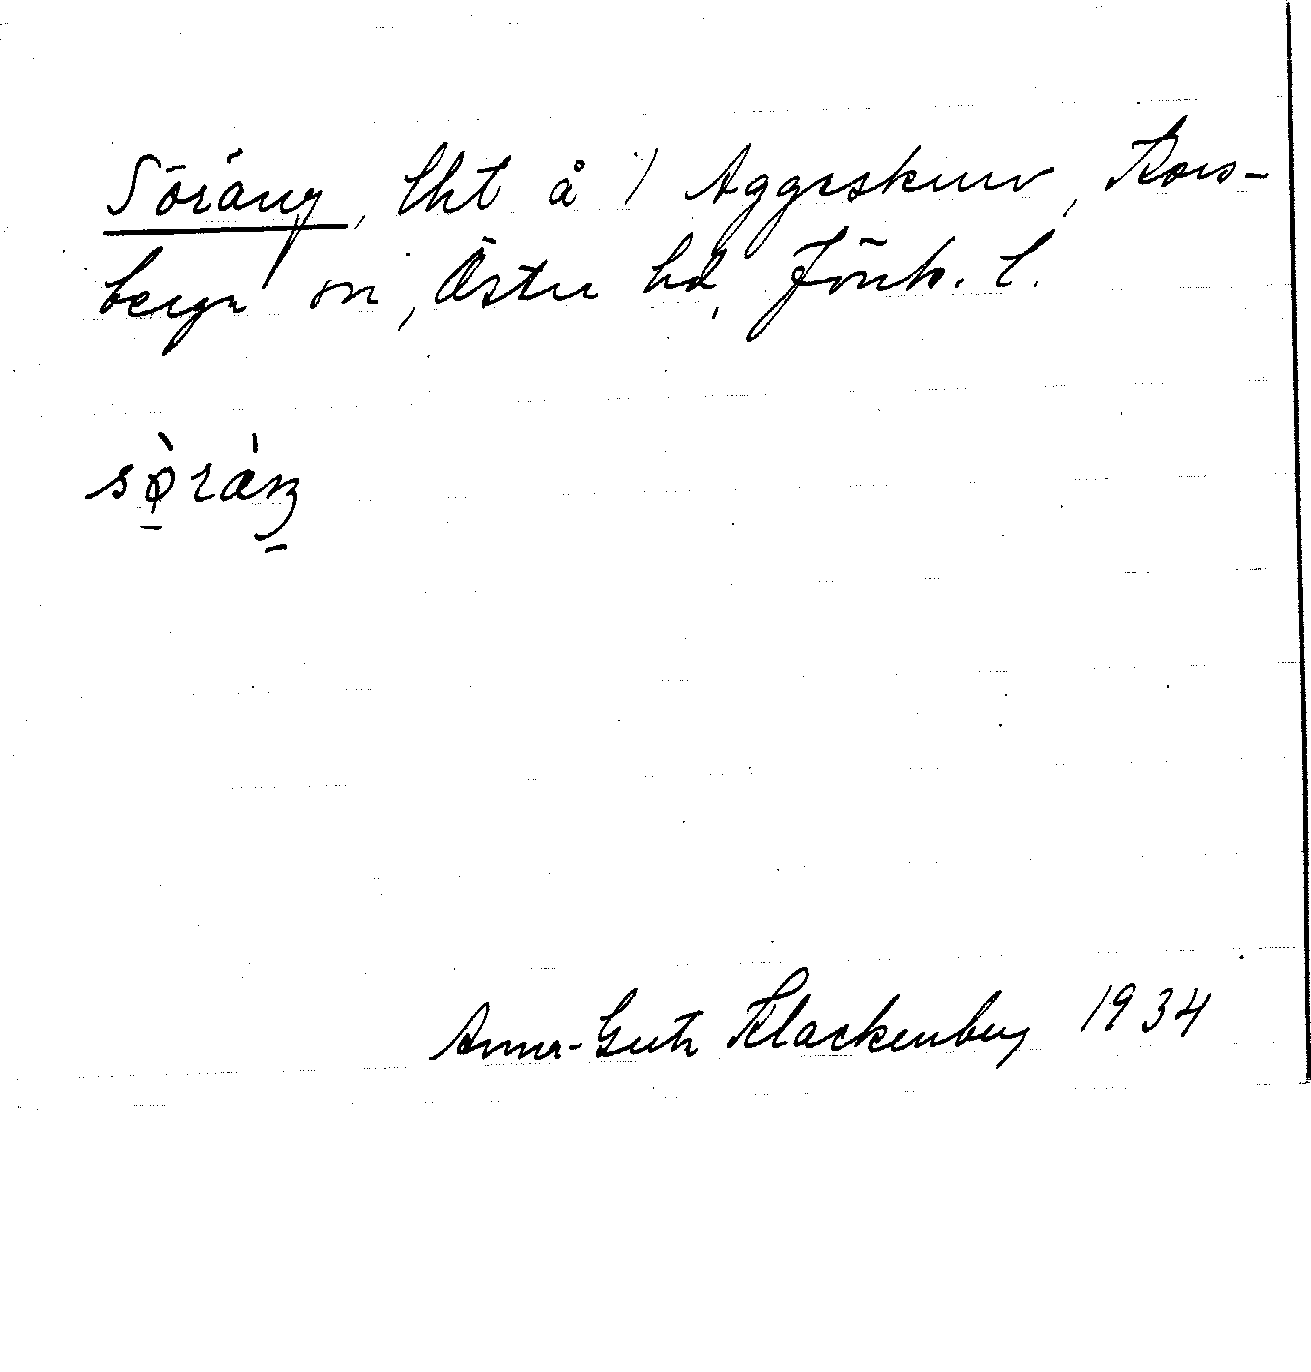 Söräng, lht å 1 Aggeskurv, Kors-
berga sn, Östra hd, Jönk. l.
sø̀ràŋ
Anna-Greta Klackenberg 1934